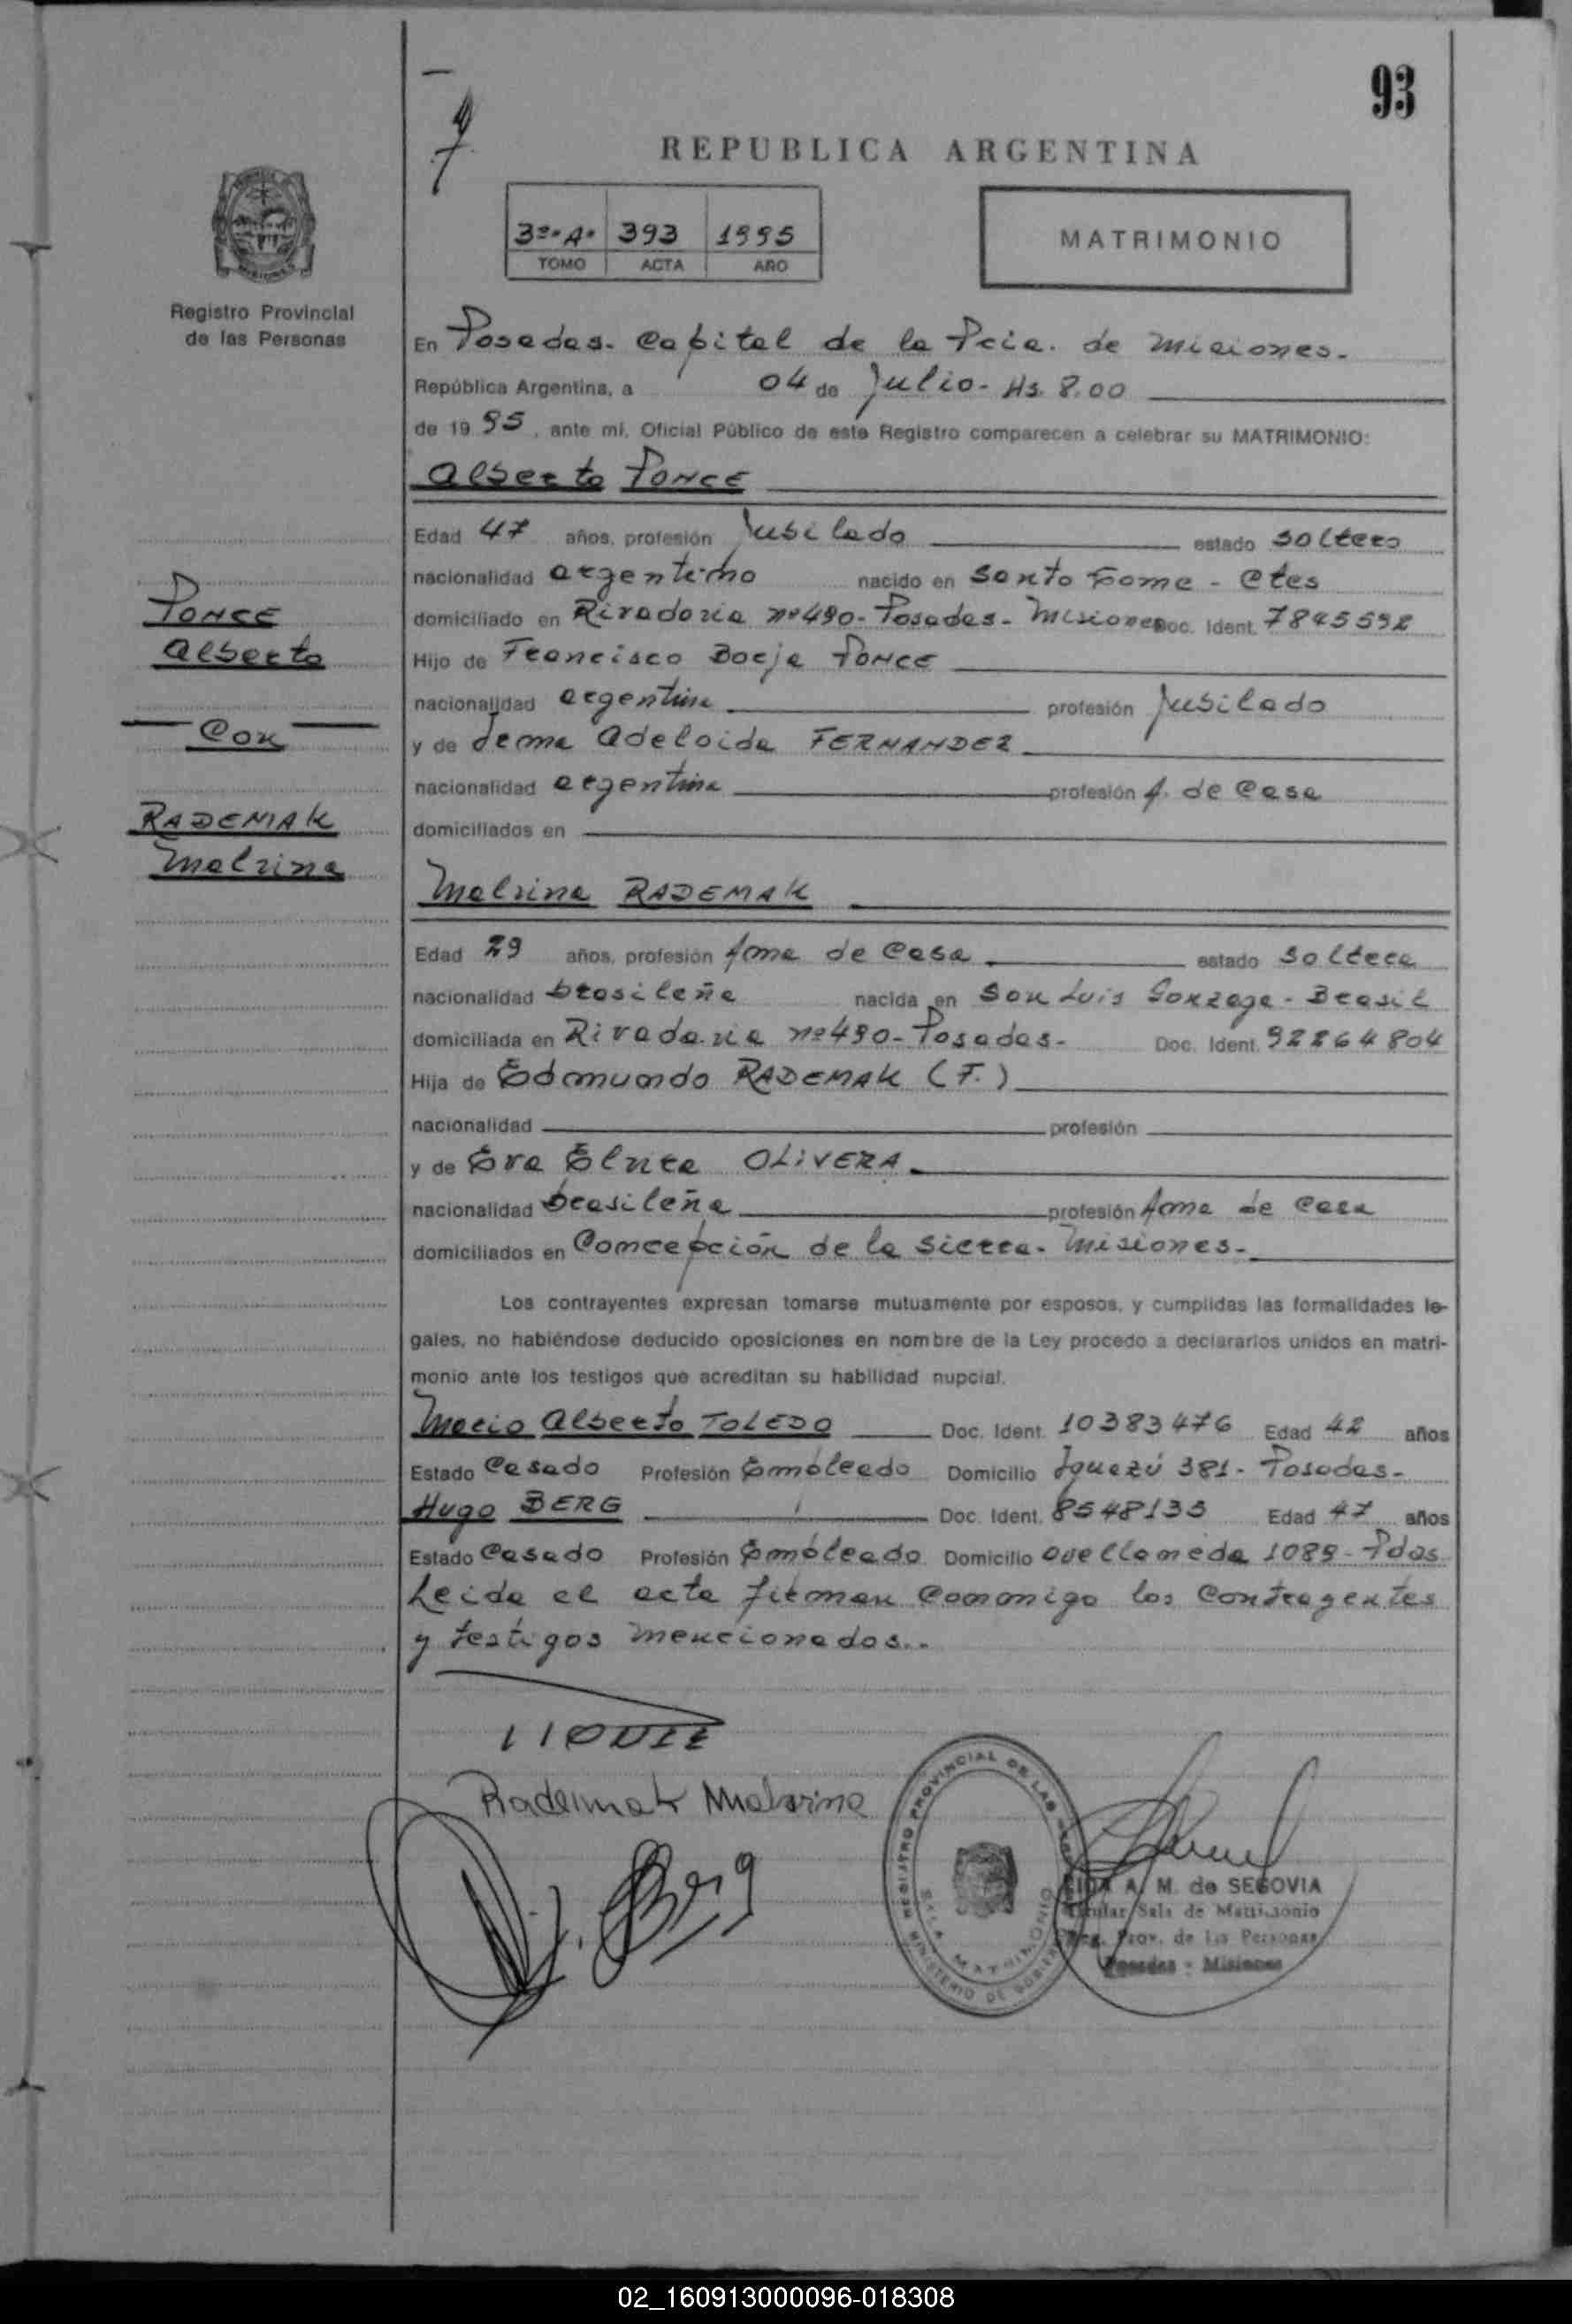 93
REPUBLICA ARGENTINA
3º "A" 393 1995
TOMO ACTA AÑO
MATRIMONIO
Registro Provincial
de las Personas
En Posadas. Capital de la Pcia. de Misiones.
República Argentina, a 04 de Julio - Hs. 8.00
de 1995, ante mí, Oficial Público de este Registro comparecen a celebrar su MATRIMONIO:
Alberto PONCE
Edad 47 años, profesión Jubilado estado soltero
nacionalidad argentino nacido en Santo Tome - Ctes
domiciliado en Rivadavia nº 490 - Posadas - Misiones Doc. Ident. 7845592
Hijo de Francisco Borja PONCE
nacionalidad argentina profesión Jubilado
y de Irma Adelaida FERNANDEZ
nacionalidad argentina profesión A. de Casa
domiciliados en
PONCE
Alberto
Con
RADEMAK
Malvina
Malvina RADEMAK
Edad 29 años, profesión Ama de Casa estado soltera
nacionalidad brasileña nacida en San Luis Gonzaga - Brasil
domiciliada en Rivadavia nº 490 - Posadas - Doc. Ident. 92264804
Hija de Edmundo RADEMAK (F.)
nacionalidad profesión
y de Eva OLIVERA
nacionalidad brasileña profesión Ama de Casa
domiciliados en Concepción de la Sierra - Misiones -
Los contrayentes expresan tomarse mutuamente por esposos, y cumplidas las formalidades le-
gales, no habiéndose deducido oposiciones en nombre de la Ley procedo a declararlos unidos en matri-
monio ante los testigos que acreditan su habilidad nupcial.
Mario Alberto TOLEDO Doc. Ident. 10383476 Edad 42 años
Estado Casado Profesión Empleado Domicilio Iguazú 381 - Posadas -
Hugo BERG Doc. Ident. 8548135 Edad 47 años
Estado Casado Profesión Empleado Domicilio Avellaneda 1089 - Pdas
Leida el acta firman conmigo los contrayentes
y testigos mencionados..
Rademak Malvina
Berg
REGISTRO PROVINCIAL DE LAS
SALA MATRIMONIO
MINISTERIO DE GOBIERNO
A. M. de SEGOVIA
Titular Sala de Matrimonio
Reg. Prov. de las Personas
Posadas - Misiones
02_160913000096-018308